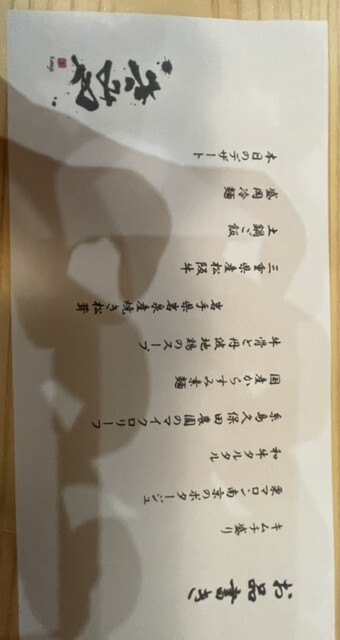 お品書き
キムチ盛り
栗マロン南京のポタージュ
和牛タルタル
糸島久保田農園のマイクロリーフ
国産からすみ素麺
牛骨と丹波地鶏のスープ
岩手県岩泉産焼き松茸
三重県産松阪牛
土鍋ご飯
盛岡冷麺
本日のデザート